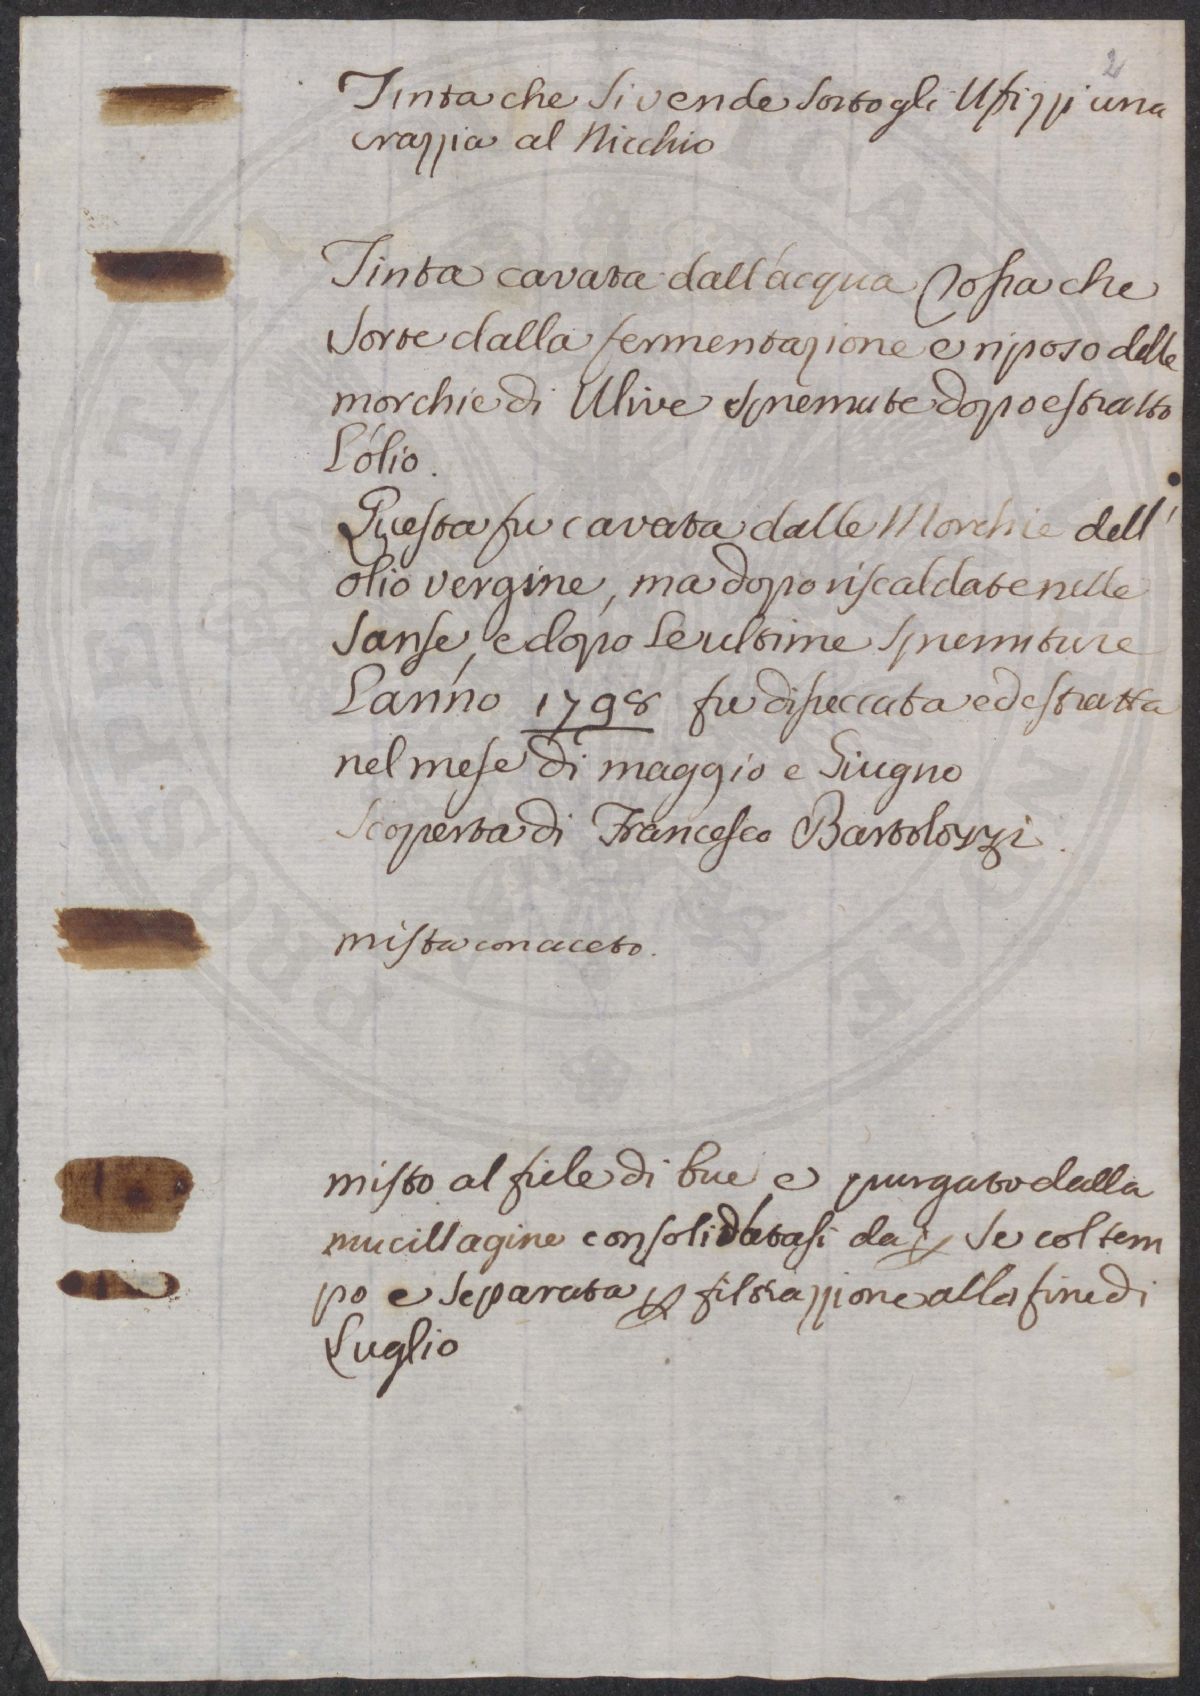 2
Tinta che si vende sotto gli Ufizzi una
crazzia al Nicchio
Tinta cavata dall'acqua rossa che
sorte dalla fermentazione e riposo delle
morchie di Ulive spremute dopo estratto
l'olio.
Questa fu cavata dalle Morchie dell'
olio vergine, ma dopo riscaldate nelle
sanse, e dopo le ultime spremiture
l'anno 1798 fu diseccata ed estratta
nel mese di maggio e Giugno
scoperta di Francesco Bartolozzi.
mista con aceto.
misto al fiele di bue, e purgato dalla
mucillagine consolidatasi da p se col tem
po e separata p filtrazzione alla fine di
Luglio